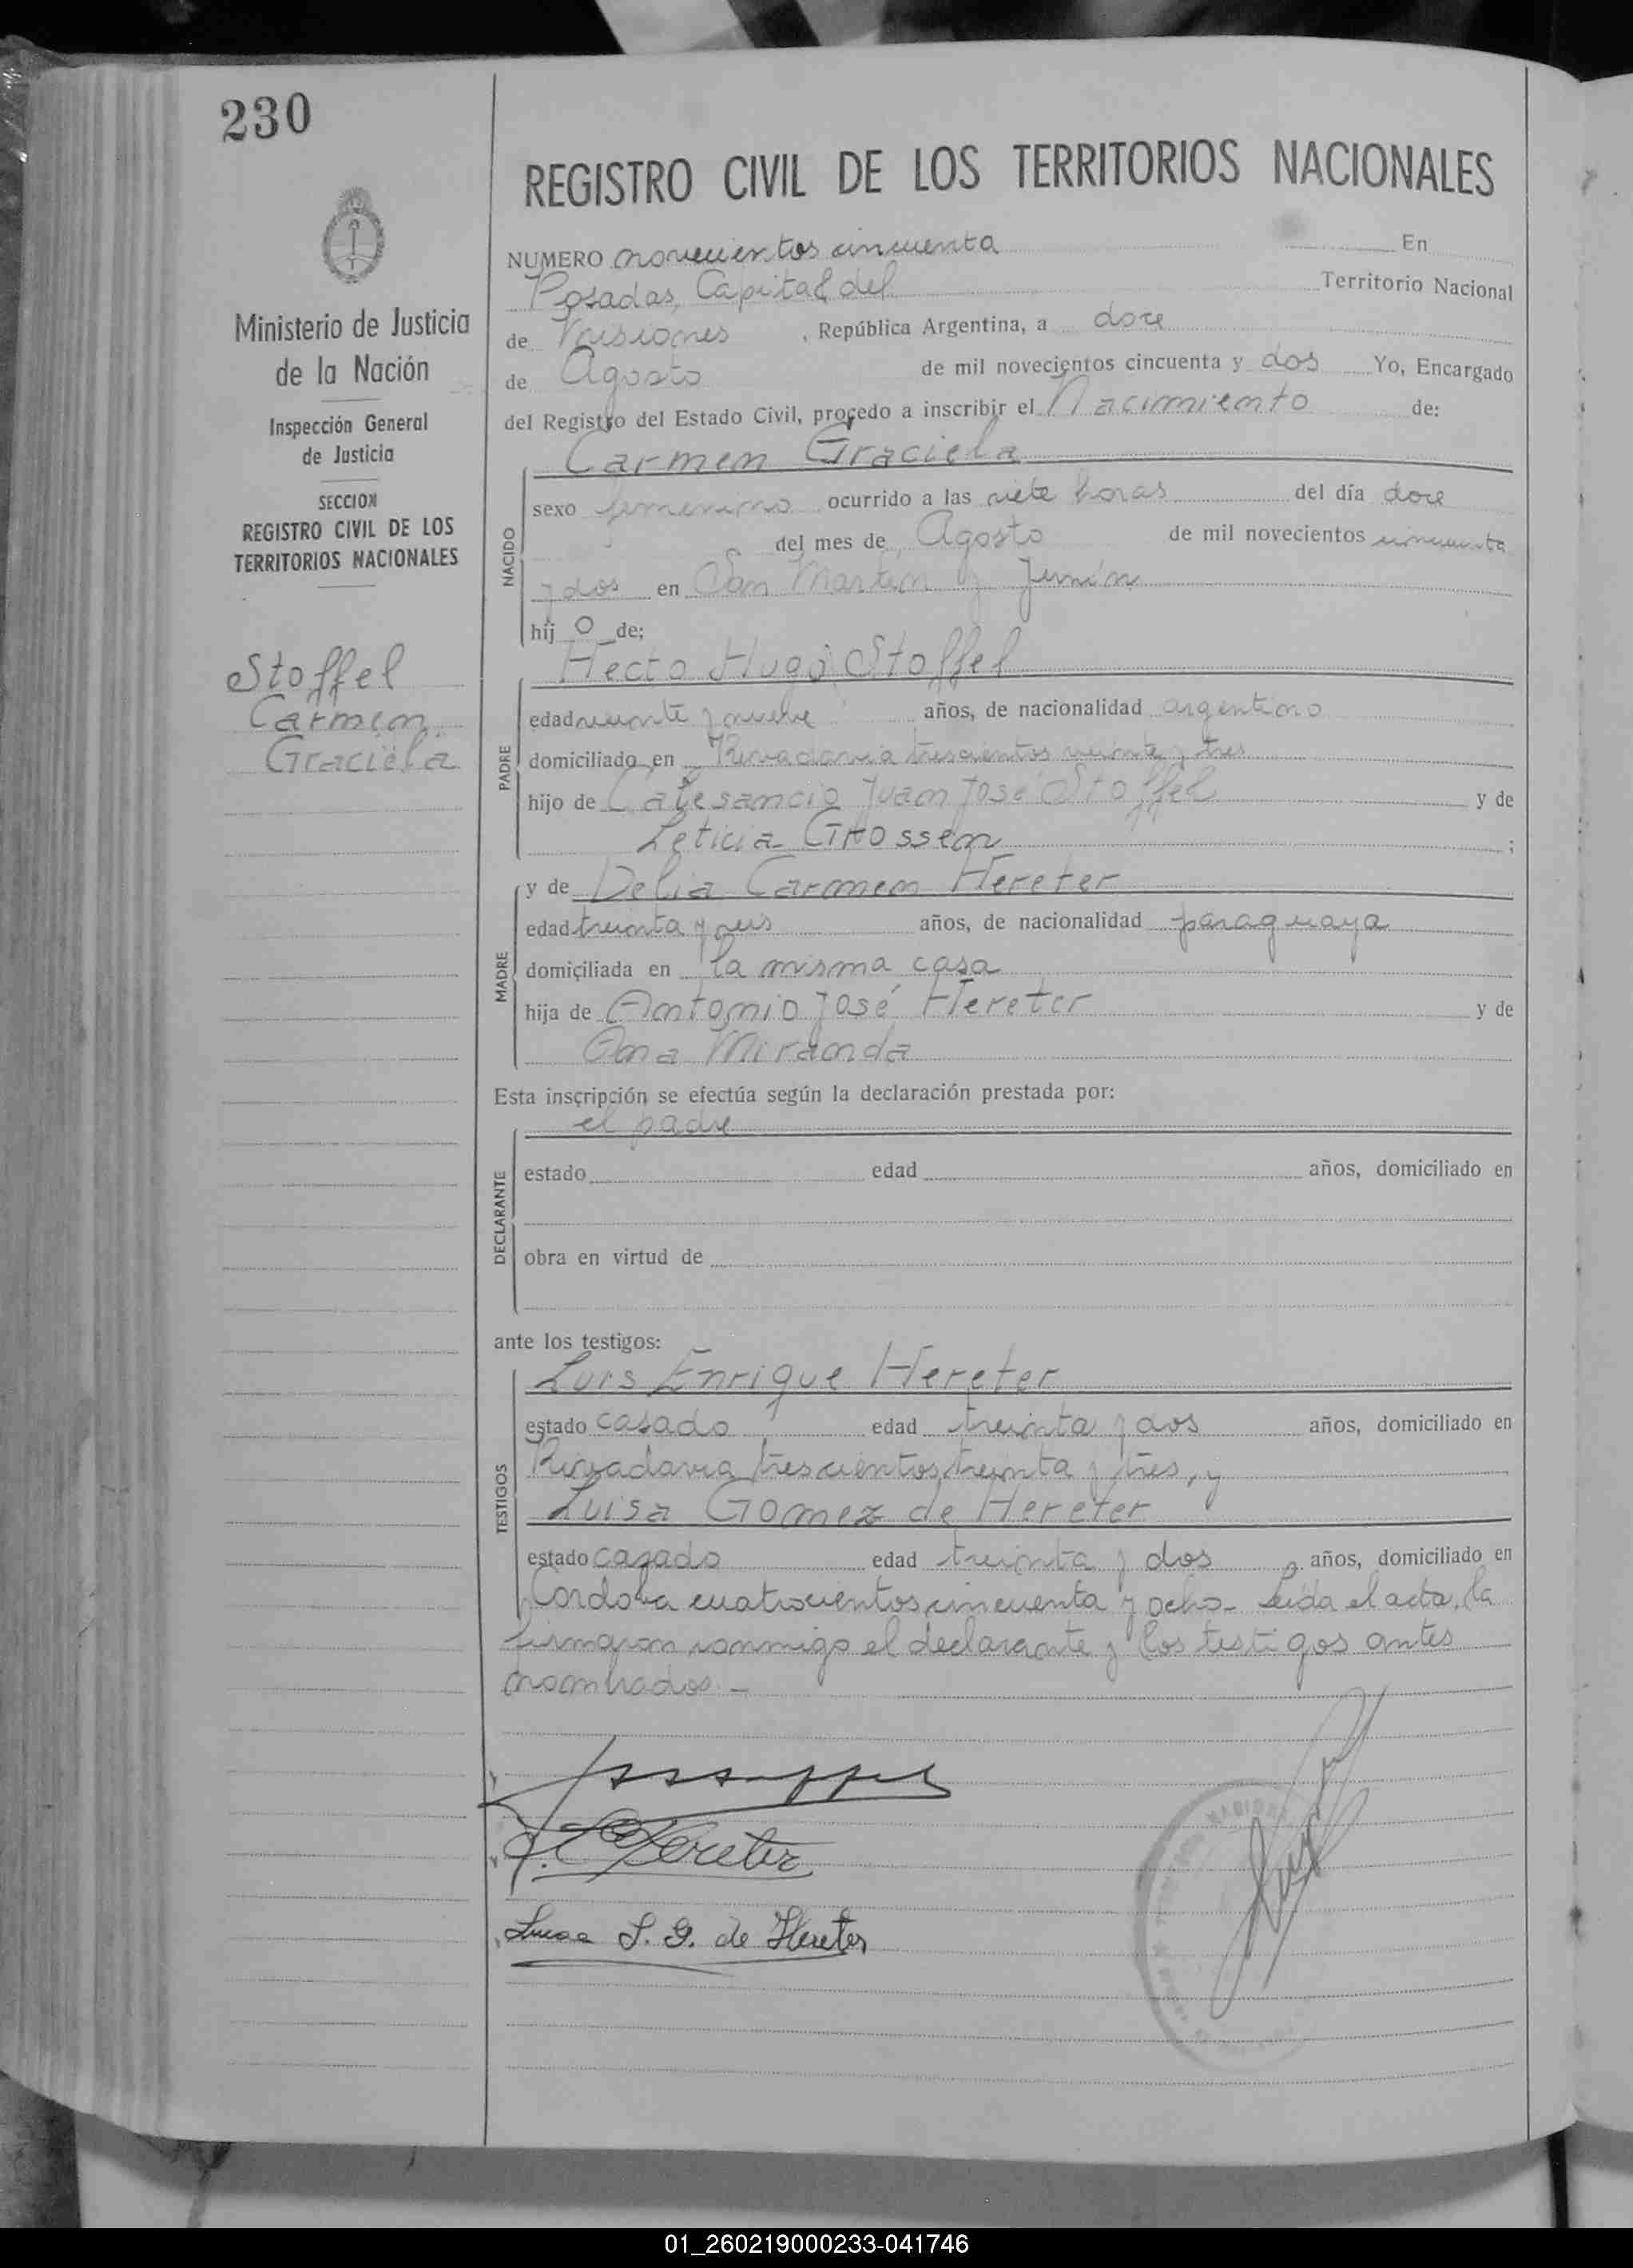 230
REGISTRO CIVIL DE LOS TERRITORIOS NACIONALES
Ministerio de Justicia
de la Nación
Inspección General
de Justicia
SECCION
REGISTRO CIVIL DE LOS
TERRITORIOS NACIONALES
Stoffel
Carmen
Graciela
NUMERO novecientos cincuenta En
Posadas, Capital del Territorio Nacional
de Misiones , República Argentina, a doce
de Agosto de mil novecientos cincuenta y dos Yo, Encargado
del Registro del Estado Civil, procedo a inscribir el Nacimiento de:
Carmen Graciela
NACIDO
sexo femenino ocurrido a las siete horas del día doce
del mes de Agosto de mil novecientos cincuenta
y dos en San Martin y Junín
hij o de:
Hecto Hugo Stoffel
PADRE
edad y nueve años, de nacionalidad argentino
domiciliado en Rivadavia trescientos y tres
hijo de Calesancio Juan José Stoffel y de
Leticia Grossen ;
MADRE
y de Delia Carmen Hereter
edad treinta y seis años, de nacionalidad paraguaya
domiciliada en la misma casa
hija de Antonio José Hereter y de
Ana Miranda
Esta inscripción se efectúa según la declaración prestada por:
el padre
DECLARANTE
estado edad años, domiciliado en
obra en virtud de
ante los testigos:
TESTIGOS
Luis Enrique Hereter
estado casado edad treinta y dos años, domiciliado en
Rivadavia trescientos treinta y tres, y
Luisa Gomez de Hereter
estado casado edad treinta y dos años, domiciliado en
Cordoba cuatrocientos cincuenta y ocho- Leida el acta, la
firmaron conmigo el declarante y los testigos antes
nombrados.-
Hereter
Luisa S. G. de Hereter
01_260219000233-041746